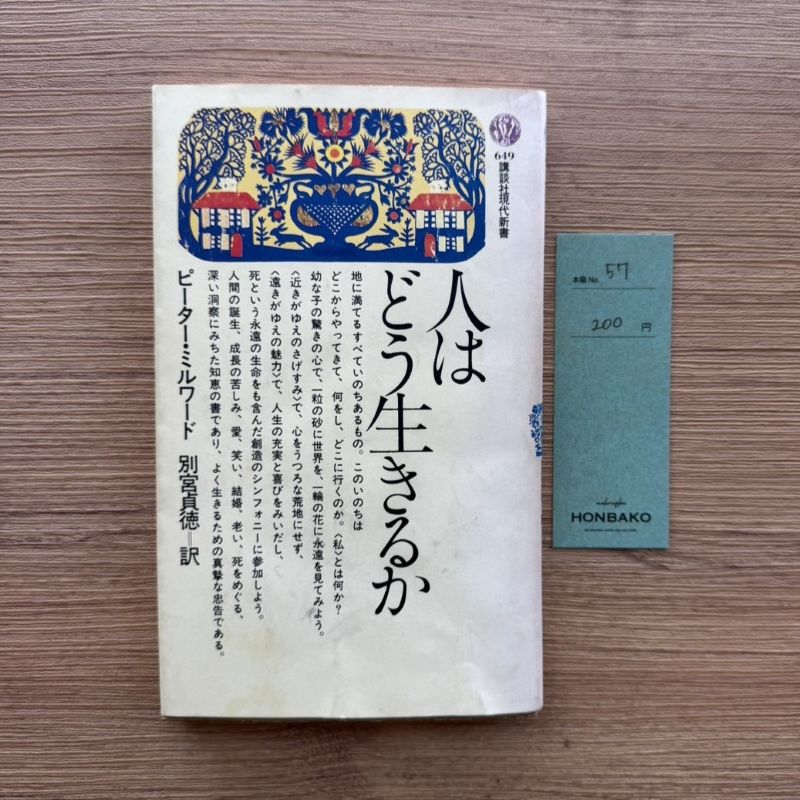 649
講談社現代新書
人は
どう生きるか
地に満てるすべていのちあるもの。このいのちは
どこからやってきて、何をし、どこに行くのか。〈私〉とは何か?
幼な子の驚きの心で、一粒の砂に世界を、一輪の花に永遠を見てみよう。
〈近きがゆえのさげすみ〉で、心をうつろな荒地にせず、
〈遠きがゆえの魅力〉で、人生の充実と喜びをみいだし、
死という永遠の生命をも含んだ創造のシンフォニーに参加しよう。
人間の誕生、成長の苦しみ、愛、笑い、結婚、老い、死をめぐる、
深い洞察にみちた知恵の書であり、よく生きるための真摯な忠告である。
ピーター・ミルワード 別宮貞徳=訳
本箱 No. 57
200 円
HONBAKO